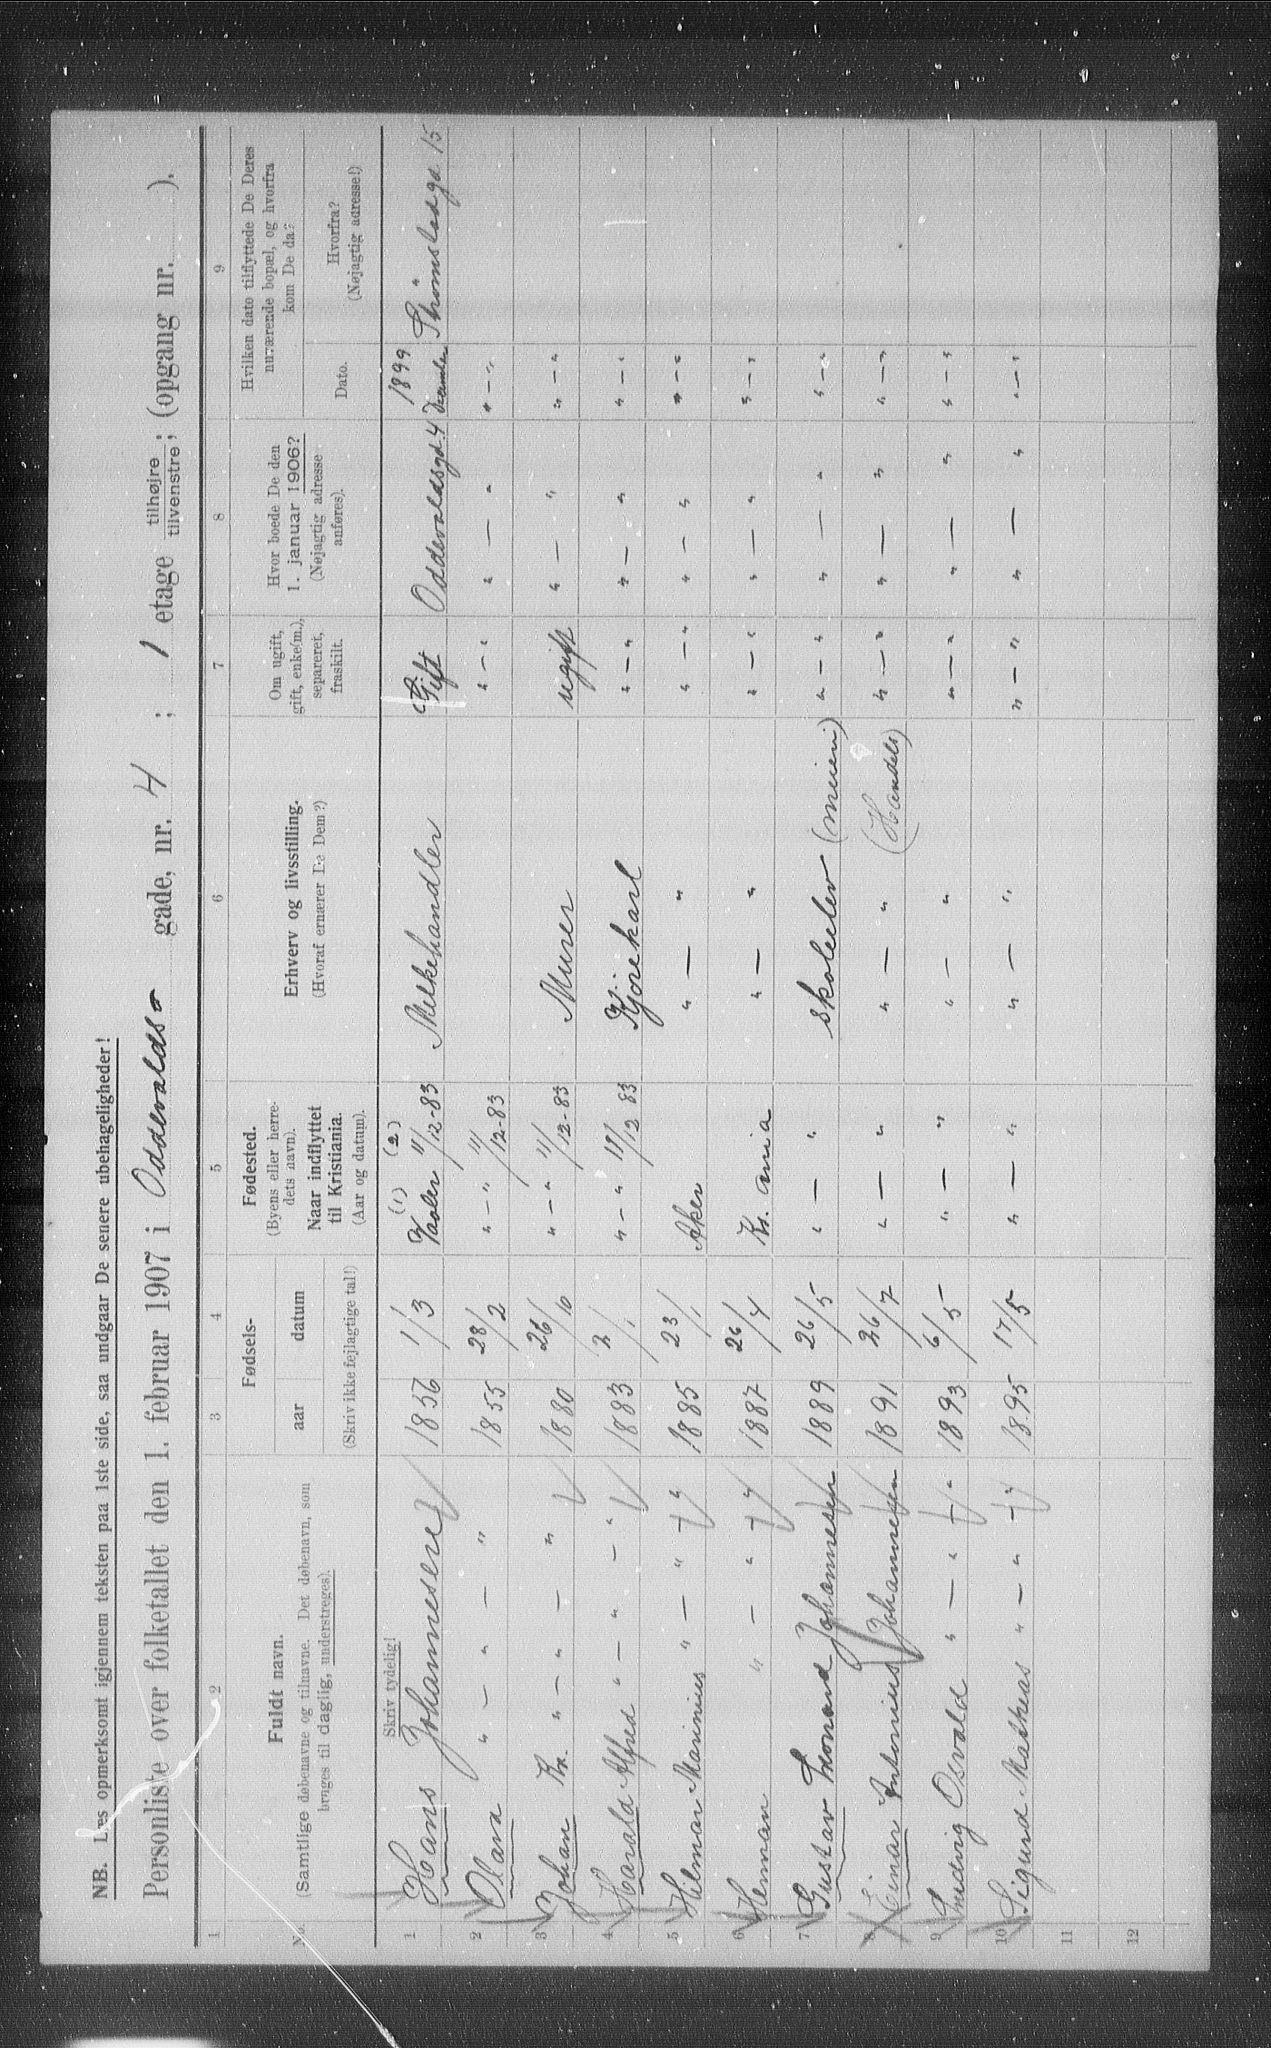 NB. Læs opmerksomt igjennem teksten paa 1ste side, saa undgaar De senere ubehageligheder!
Personliste over folketallet den 1. februar 1907 i Oddevalds- gade, nr. 4 ; 1 etage tilhøjre / tilvenstre; (opgang nr. ).
1 2 3 4 5 6 7 8 9
No. Fuldt navn. (Samtlige døbenavne og tilnavne. Det døbenavn, som bruges til daglig, understreges).
Fødsels- aar datum (Skriv ikke fejlagtige tal!)
Fødested. (Byens eller herredets navn). Naar indflyttet til Kristiania. (Aar og datum).
Erhverv og livsstilling. (Hvoraf ernærer De Dem?)
Om ugift, gift, enke(m.), separeret, fraskilt.
Hvor boede De den 1. januar 1906? (Nøjagtig adresse anføres).
Hvilken dato tilflyttede De Deres nuværende bopæl, og hvorfra kom De da?
Dato. Hvorfra? (Nøjagtig adresse!)
Skriv tydelig!
(1) (2)
1 Hans Johannesen 1856 1/3 Vaaler 11/12-83 Melkehandler Gift Oddevaldsgd. 4 1899 Strömstadgd. 15
2 Olava " — " — " 1855 28/2 " — " 11/12-83 " — " " — " " — "
3 Johan Kr. " — " — " 1880 26/10 " — " 11/12-83 Murer ugift " — " " — "
4 Harald Alfred " — " — " 1883 2/1 " — " 11/12 83 Kjørekarl " — " " — " " — "
5 Hilmar Marinius " — " — " 1885 23/1 Aker " — " " — " " — " " — "
6 Herman " — " — " 1887 26/4 Kr.ania " — " " — " " — " " — "
7 Gustav Leonard Johannesen 1889 26/5 " — " skoleelev " — " " — " " — "
8 Einar Antonius Johannesen 1891 26/7 " — " " — " (Handels) " — " " — " " — "
9 Ludvig Osvald " — " — " 1893 6/5 " — " " — " " — " " — " " — "
10 Sigurd Matheas " — " — " 1895 17/5 " — " " — " " — " " — " " — "
11
12